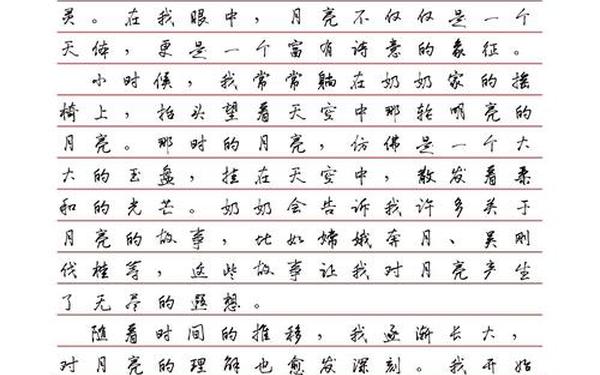 灵。在我眼中，月亮不仅仅是一个
天体，更是一个富有诗意的象征。
小时候，我常常躺在奶奶家的摇
椅上，抬头望着天空中那轮明亮的
月亮。那时的月亮，仿佛是一个大
大的玉盘，挂在天空中，散发着柔
和的光芒。奶奶会告诉我许多关于
月亮的故事，比如嫦娥奔月、吴刚
伐桂等，这些故事让我对月亮产生
了无尽的遐想。
随着时间的推移，我逐渐长大，
对月亮的理解也愈发深刻。我开始